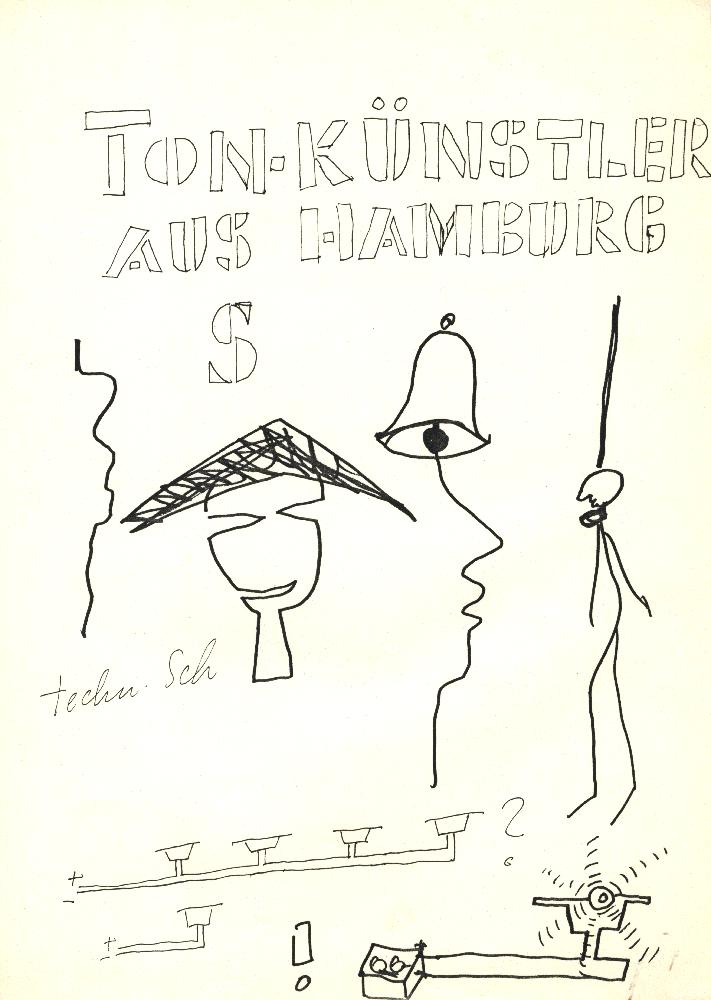 TON-KÜNSTLER
AUS HAMBURG
S
techn. Sch
+
-
?
+
-
!